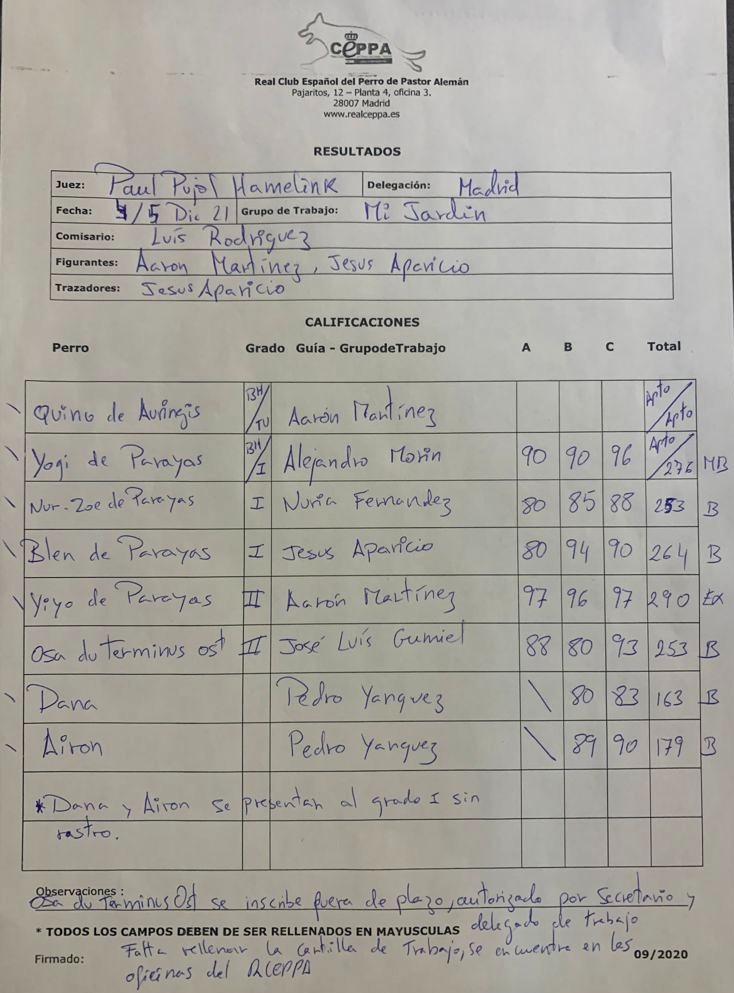 CEPPA
Real Club Español del Perro de Pastor Alemán
Pajaritos, 12 – Planta 4, oficina 3.
28007 Madrid
www.realceppa.es
RESULTADOS
Juez: Paul Pujol Hamelink Delegación: Madrid
Fecha: 4/5 Dic 21 Grupo de Trabajo: Mi Jardin
Comisario: Luís Rodríguez
Figurantes: Aaron Martínez, Jesus Aparicio
Trazadores: Jesus Aparicio
CALIFICACIONES
Perro Grado Guía - GrupodeTrabajo A B C Total
Quino de Auringis BH/TU Aarón Martínez Apto/Apto
Yogi de Parayas BH/I Alejandro Morin 90 90 96 Apto/276 MB
Nur-Zoe de Parayas I Nuria Fernandez 80 85 88 253 B
Blen de Parayas I Jesus Aparicio 80 94 90 264 B
Yiyo de Parayas II Aarón Martínez 97 96 97 290 Ex
Osa du Terminus ost II José Luís Gumiel 88 80 93 253 B
Dana Pedro Yanquez \ 80 83 163 B
Airon Pedro Yanquez \ 89 90 179 B
*Dana y Airon se presentan al grado I sin
rastro.
Observaciones :
Osa du Terminus Ost se inscribe fuera de plazo, autorizado por Secretario y
* TODOS LOS CAMPOS DEBEN DE SER RELLENADOS EN MAYUSCULAS delegado de trabajo
Firmado: Falta rellenar la Cartilla de Trabajo, se encuentra en las 09/2020
oficinas del RCEPPA